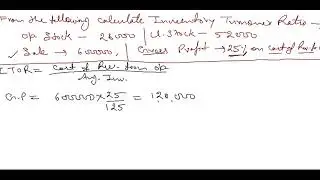 From the following calculate Inventory Turnover Ratio -
op Stock - 26000 | cl. Stock - 52000
Sale - 600000, Gross Profit - 25% on cost of Rev
ITOR = Cost of Rev. from op / Avg. Inv.
G.P = 600000 x 25/125 = 120,000